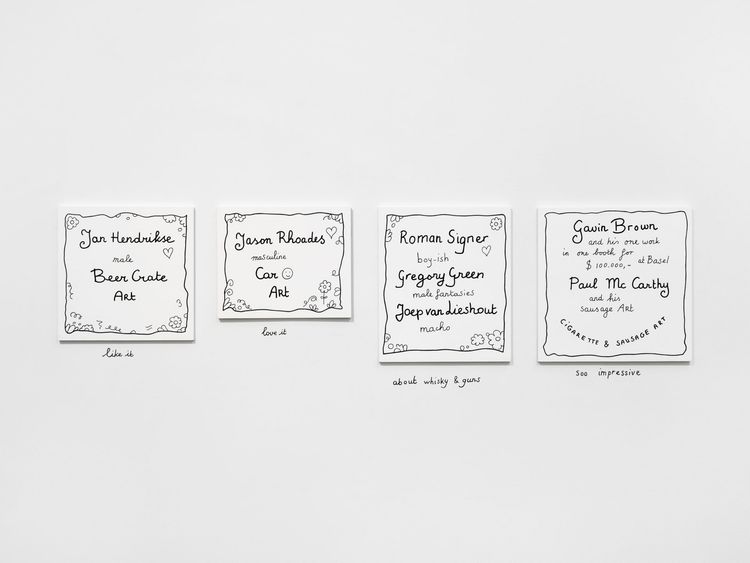 Jan Hendrikse
male
Beer Crate
Art
like it
Jason Rhoades
masculine
Car
Art
love it
Roman Signer
boy-ish
Gregory Green
male fantasies
Joep van Lieshout
macho
about whisky & guns
Gavin Brown
and his one work
in one booth for
$ 100.000,- at Basel
Paul Mc Carthy
and his
sausage Art
CIGARETTE & SAUSAGE ART
soo impressive